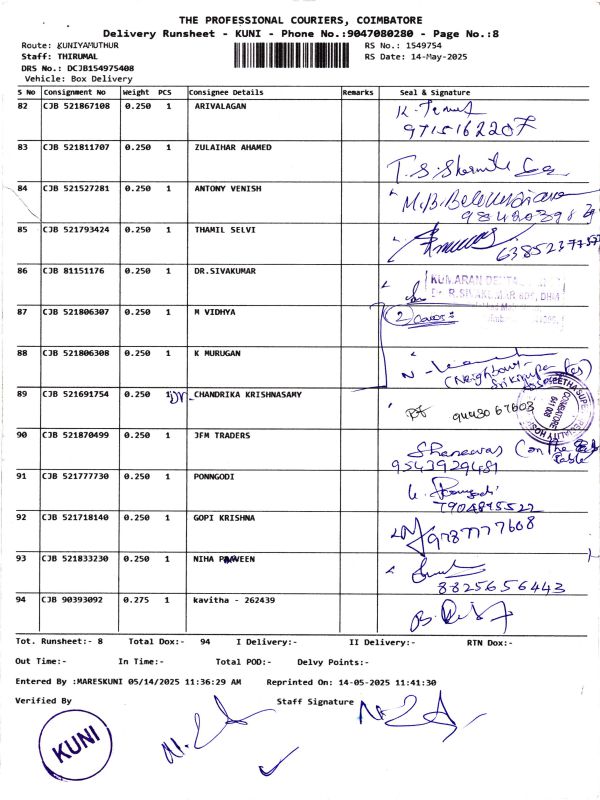 THE PROFESSIONAL COURIERS, COIMBATORE
Delivery Runsheet - KUNI - Phone No.:9047080280 - Page No.:8
Route: KUNIYAMUTHUR RS No.: 1549754
Staff: THIRUMAL RS Date: 14-May-2025
DRS No.: DCJB154975408
Vehicle: Box Delivery
S No Consignment No Weight PCS Consignee Details Remarks Seal & Signature
82 CJB 521867108 0.250 1 ARIVALAGAN
9715162207
83 CJB 521811707 0.250 1 ZULAIHAR AHAMED
84 CJB 521527281 0.250 1 ANTONY VENISH
85 CJB 521793424 0.250 1 THAMIL SELVI
86 CJB 81151176 0.250 1 DR.SIVAKUMAR
KUMARAN
87 CJB 521806307 0.250 1 M VIDHYA
2
88 CJB 521806308 0.250 1 K MURUGAN
(Neighbour-
89 CJB 521691754 0.250 1 Dr. CHANDRIKA KRISHNASAMY
COIMBATORE
90 CJB 521870499 0.250 1 JFM TRADERS
(on the
table
9543929481
91 CJB 521777730 0.250 1 PONNGODI
7904895522
92 CJB 521718140 0.250 1 GOPI KRISHNA
9787777608
93 CJB 521833230 0.250 1 NIHA PARVEEN
8825656443
94 CJB 90393092 0.275 1 kavitha - 262439
Tot. Runsheet:- 8 Total Dox:- 94 I Delivery:- II Delivery:- RTN Dox:-
Out Time:- In Time:- Total POD:- Delvy Points:-
Entered By :MARESKUNI 05/14/2025 11:36:29 AM Reprinted On: 14-05-2025 11:41:30
Verified By Staff Signature
KUNI